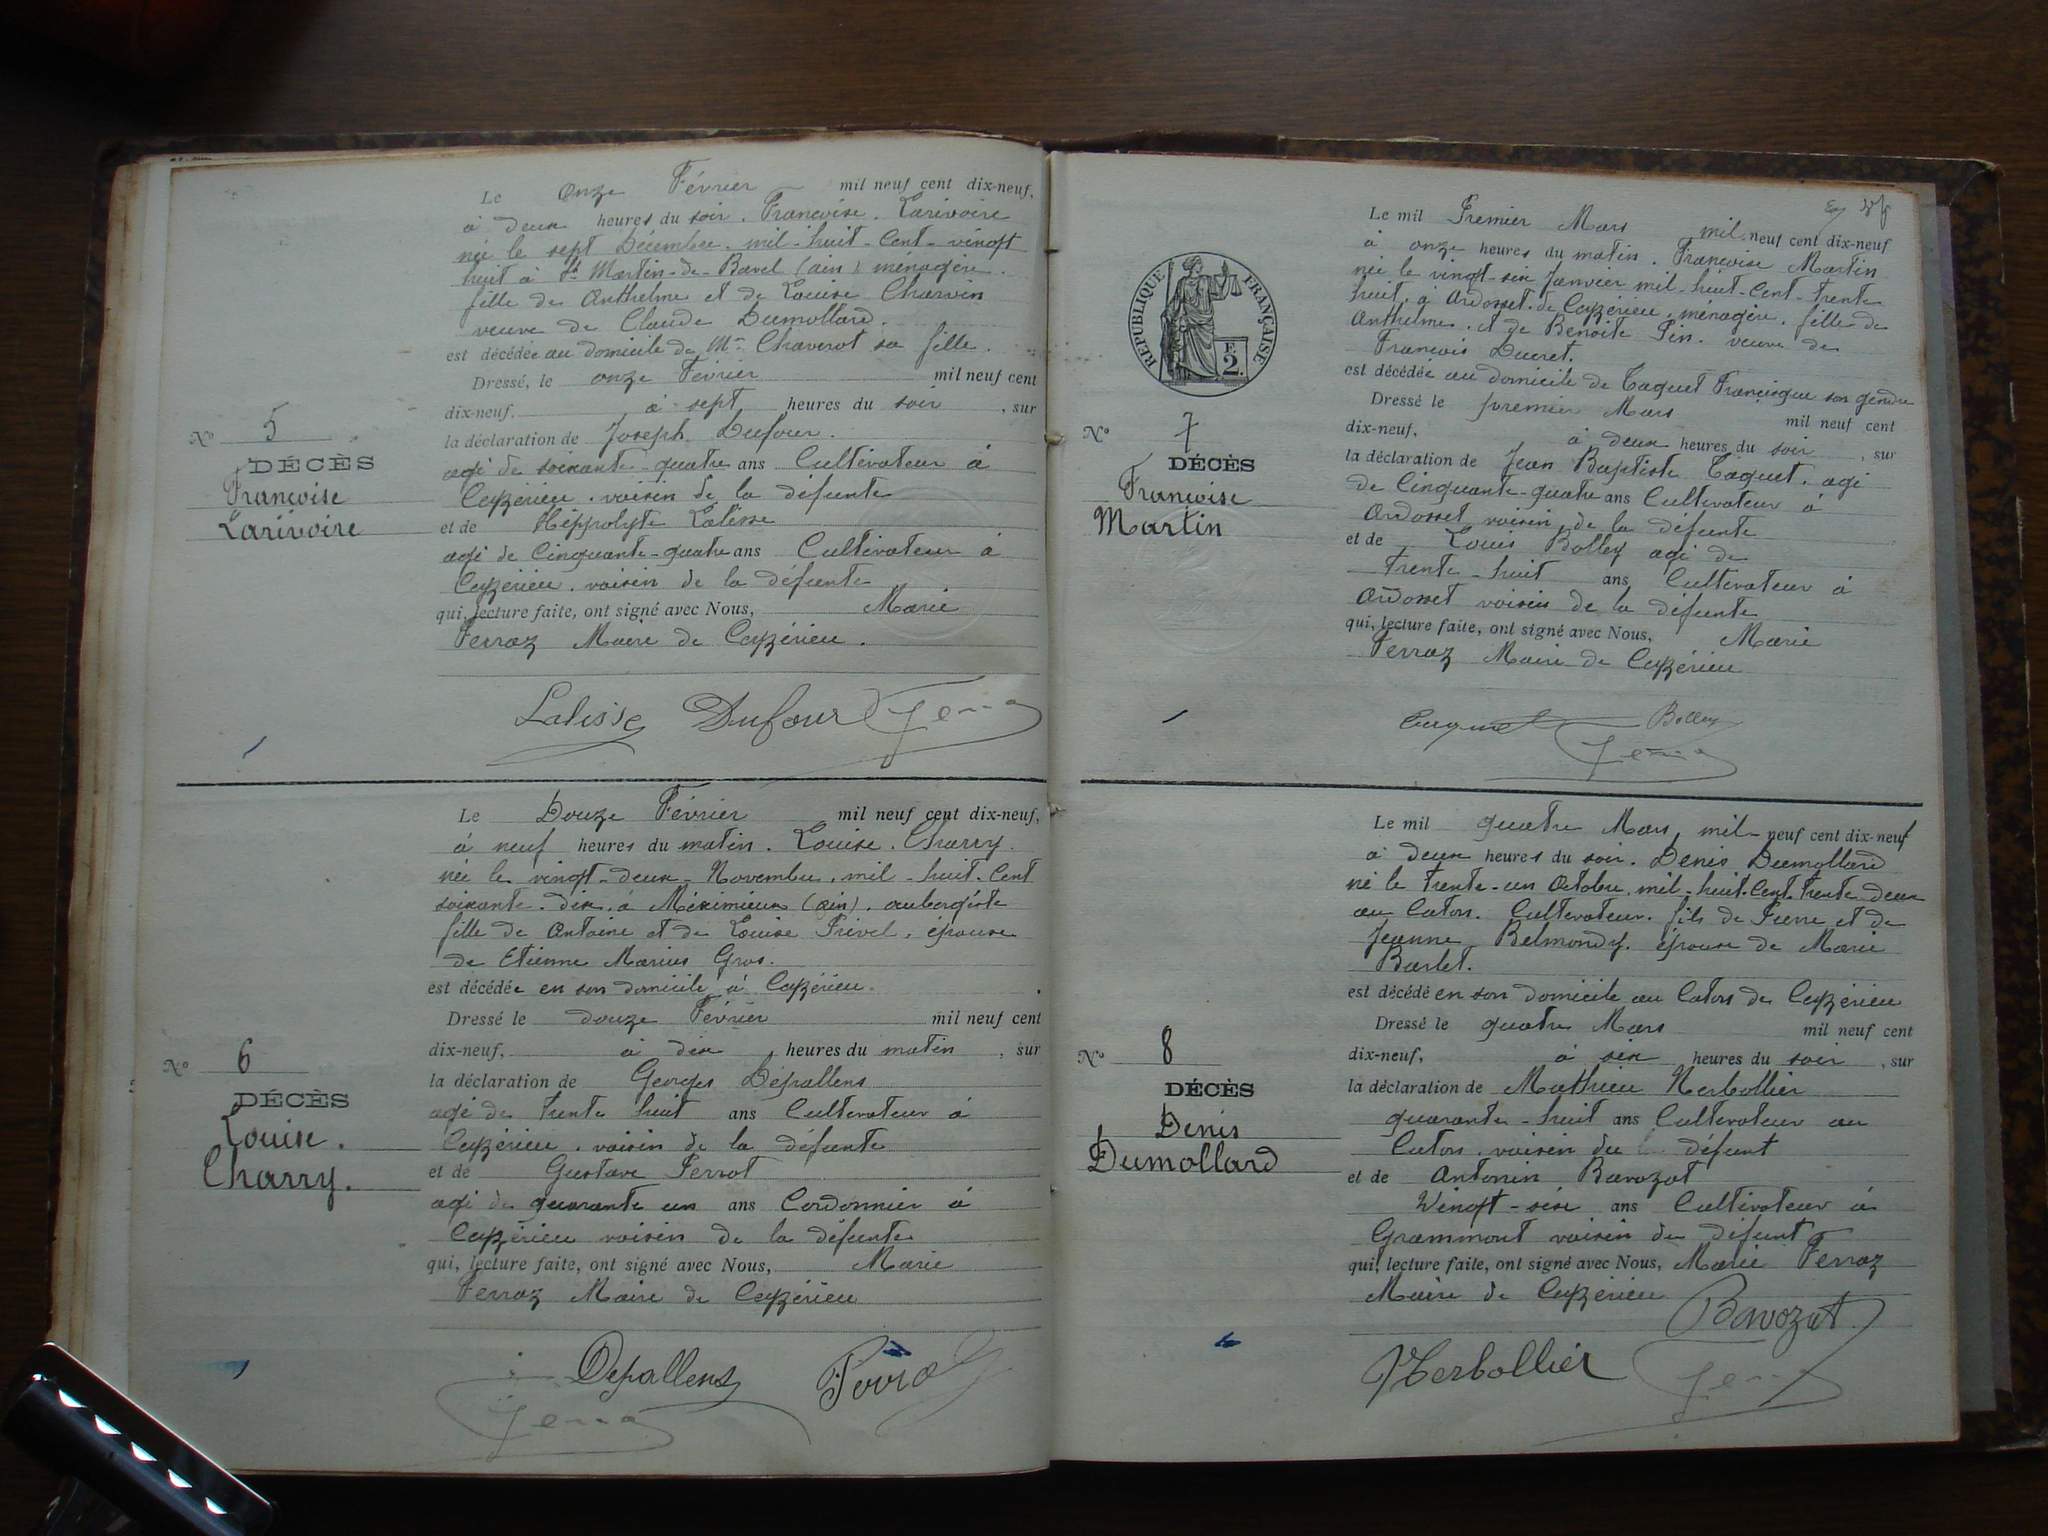 Le onze Février mil neuf cent dix-neuf,
à deux heures du soir. Françoise. Larivoire
née le sept Décembre. mil-huit-cent-vingt
huit à St Martin-de-Bavel (ain) ménagère.
fille de Anthelme et de Louise Charvin
veuve de Claude Dumollard.
est décédée au domicile de Me Chaverot sa fille.
Dressé, le onze Février mil neuf cent
dix-neuf, à sept heures du soir, sur
la déclaration de Joseph Dufour.
agé de soixante-quatre ans Cultivateur à
Ceyzérieu. voisin de la défunte
et de Hippolyte Lalisse
agé de Cinquante-quatre ans Cultivateur à
Ceyzérieu. voisin de la défunte
qui, lecture faite, ont signé avec Nous, Marie
Ferraz Maire de Ceyzérieu.
Lalisse Dufour
No 5
DÉCÈS
Françoise
Larivoire
Le Douze Février mil neuf cent dix-neuf,
à neuf heures du matin. Louise. Charry.
née le vingt-deux-Novembre. mil-huit-Cent
soixante. dix. à Méximieux (ain). aubergiste
fille de Antoine et de Louise Privel, épouse
de Etienne Marius Gros.
est décédée en son domicile à Ceyzérieu.
Dressé le douze Février mil neuf cent
dix-neuf, à dix heures du matin, sur
la déclaration de Georges Dépallens
agé de trente huit ans Cultivateur à
Ceyzérieu. voisin de la défunte
et de Gustave Perrot
agé de quarante un ans Cordonnier à
Ceyzérieu voisin de la défunte
qui, lecture faite, ont signé avec Nous, Marie
Ferraz Maire de Ceyzérieu
Depallens
No 6
DÉCÈS
Louise.
Charry.
RÉPUBLIQUE FRANÇAISE
2
Le mil Premier Mars mil neuf cent dix-neuf
à onze heures du matin. Françoise Martin
née le vingt-six Janvier mil-huit-cent-trente
huit. à Ardosset. de Ceyzérieu. ménagère. fille de
Anthelme. et de Benoite Pin. veuve de
François Ducret.
est décédée au domicile de Taquet Francisque son gendre
Dressé le premier Mars mil neuf cent
dix-neuf, à deux heures du soir, sur
la déclaration de Jean Baptiste Taquet. agé
de Cinquante-quatre ans Cultivateur à
Ardosset voisin de la défunte
et de Louis Bolley agé de
trente-huit ans Cultivateur à
Ardosset voisin de la défunte
qui, lecture faite, ont signé avec Nous, Marie
Ferraz Maire de Ceyzérieu
Bolley
No 7
DÉCÈS
Françoise
Martin
Le mil quatre Mars mil-neuf cent dix-neuf
à deux heures du soir. Denis Dumollard
né le trente-un Octobre. mil-huit-Cent trente deux
au Caton. Cultivateur. fils de Pierre et de
Jeanne Belmondy. épouse de Marie
Barlet.
est décédé en son domicile au Caton de Ceyzérieu
Dressé le quatre Mars mil neuf cent
dix-neuf, à six heures du soir, sur
la déclaration de Mathieu Herbollier
quarante-huit ans Cultivateur au
Caton. voisin du défunt
et de Antonin Bavozat
Vingt-six ans Cultivateur à
Grammont voisin du défunt
qui, lecture faite, ont signé avec Nous, Marie Ferraz
Maire de Ceyzérieu
Bavozat
Herbollier
No 8
DÉCÈS
Denis
Dumollard